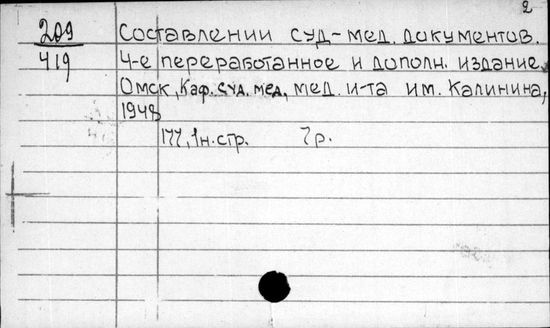 2
209 Составлении суд-мед. документов.
419 4-е переработанное и дополн. издание.
Омск, Каф. суд. мед. мед. и-та им. Калинина,
1948
177, 1н. стр. 7 р.